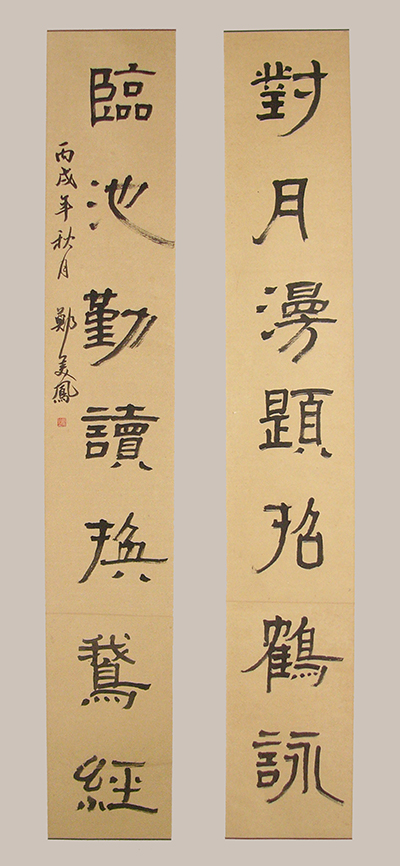 對月漫題招鶴詠
臨池勤讀換鵝經
丙戌年秋月 鄭美鳳